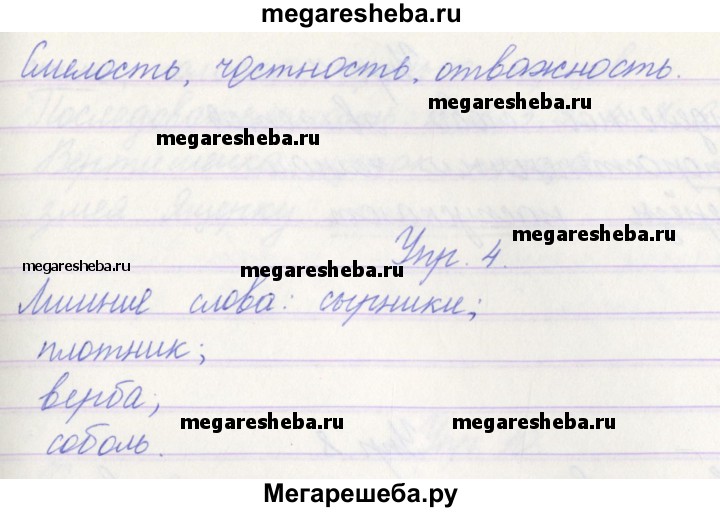 megaresheba.ru
Смелость, честность, отважность.
megaresheba.ru
megaresheba.ru
megaresheba.ru
Упр. 4.
megaresheba.ru
megaresheba.ru
Лишние слова: сырники;
плотник;
верба;
megaresheba.ru
megaresheba.ru
соболь.
Мегарешеба.ру